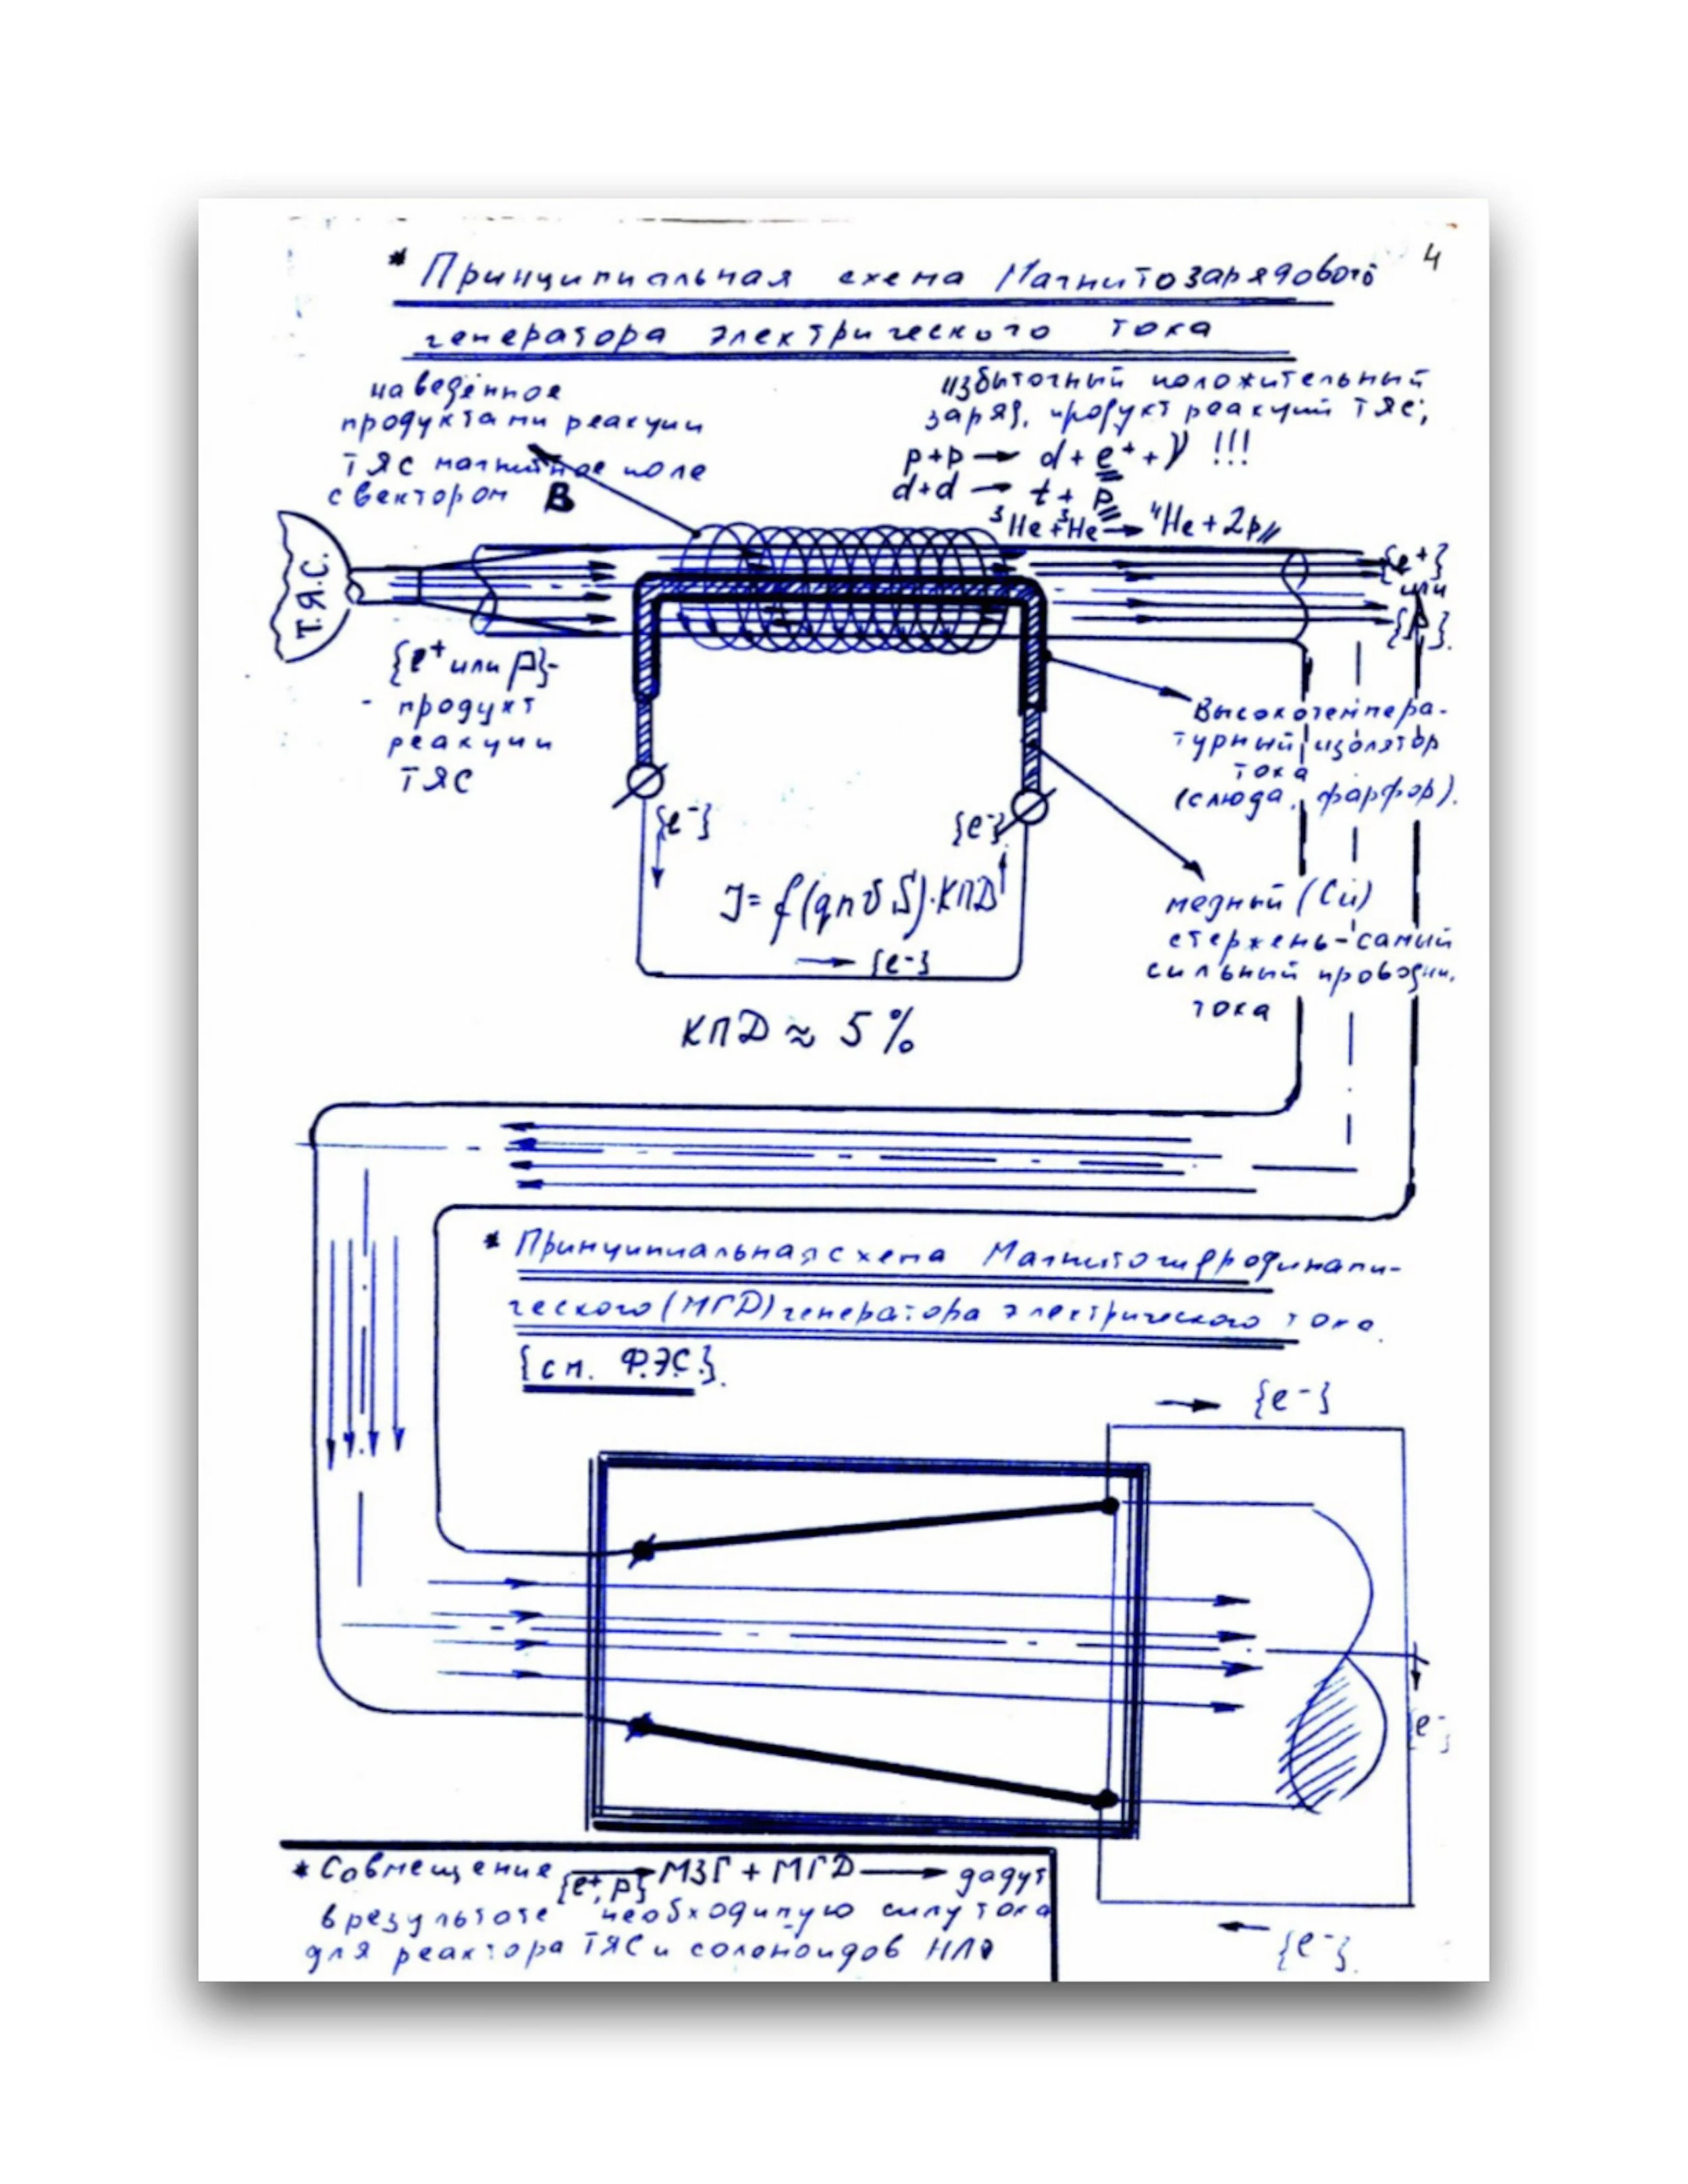 4
* Принципиальная схема Магнитозарядового
генератора электрического тока
наведённое
продуктами реакции
ТЯС магнитное поле
с вектором B
избыточный положительный
заряд, продукт реакций ТЯС;
p+p → d+e⁺+γ !!!
d+d → t+p
³He+³He → ⁴He+2p
Т.Я.С.
{e⁺}
или
{p}.
{e⁺ или p}-
- продукт
реакции
ТЯС
Высокотемпера-
турный изолятор
тока
(слюда, фарфор).
{e⁻}
{e⁻}
J=f(qnvS)·КПД
→ {e⁻}
медный (Cu)
стержень - самый
сильный проводн.
тока
КПД ≈ 5%
* Принципиальная схема Магнитогидродинами-
ческого (МГД) генератора электрического тока.
{см. Ф.Э.С.}.
→ {e⁻}
{e⁻}
* Совмещение {e⁺, p} → МЗГ + МГД → дадут
в результате необходимую силу тока
для реактора ТЯС и солоноидов НЛО
← {e⁻}.